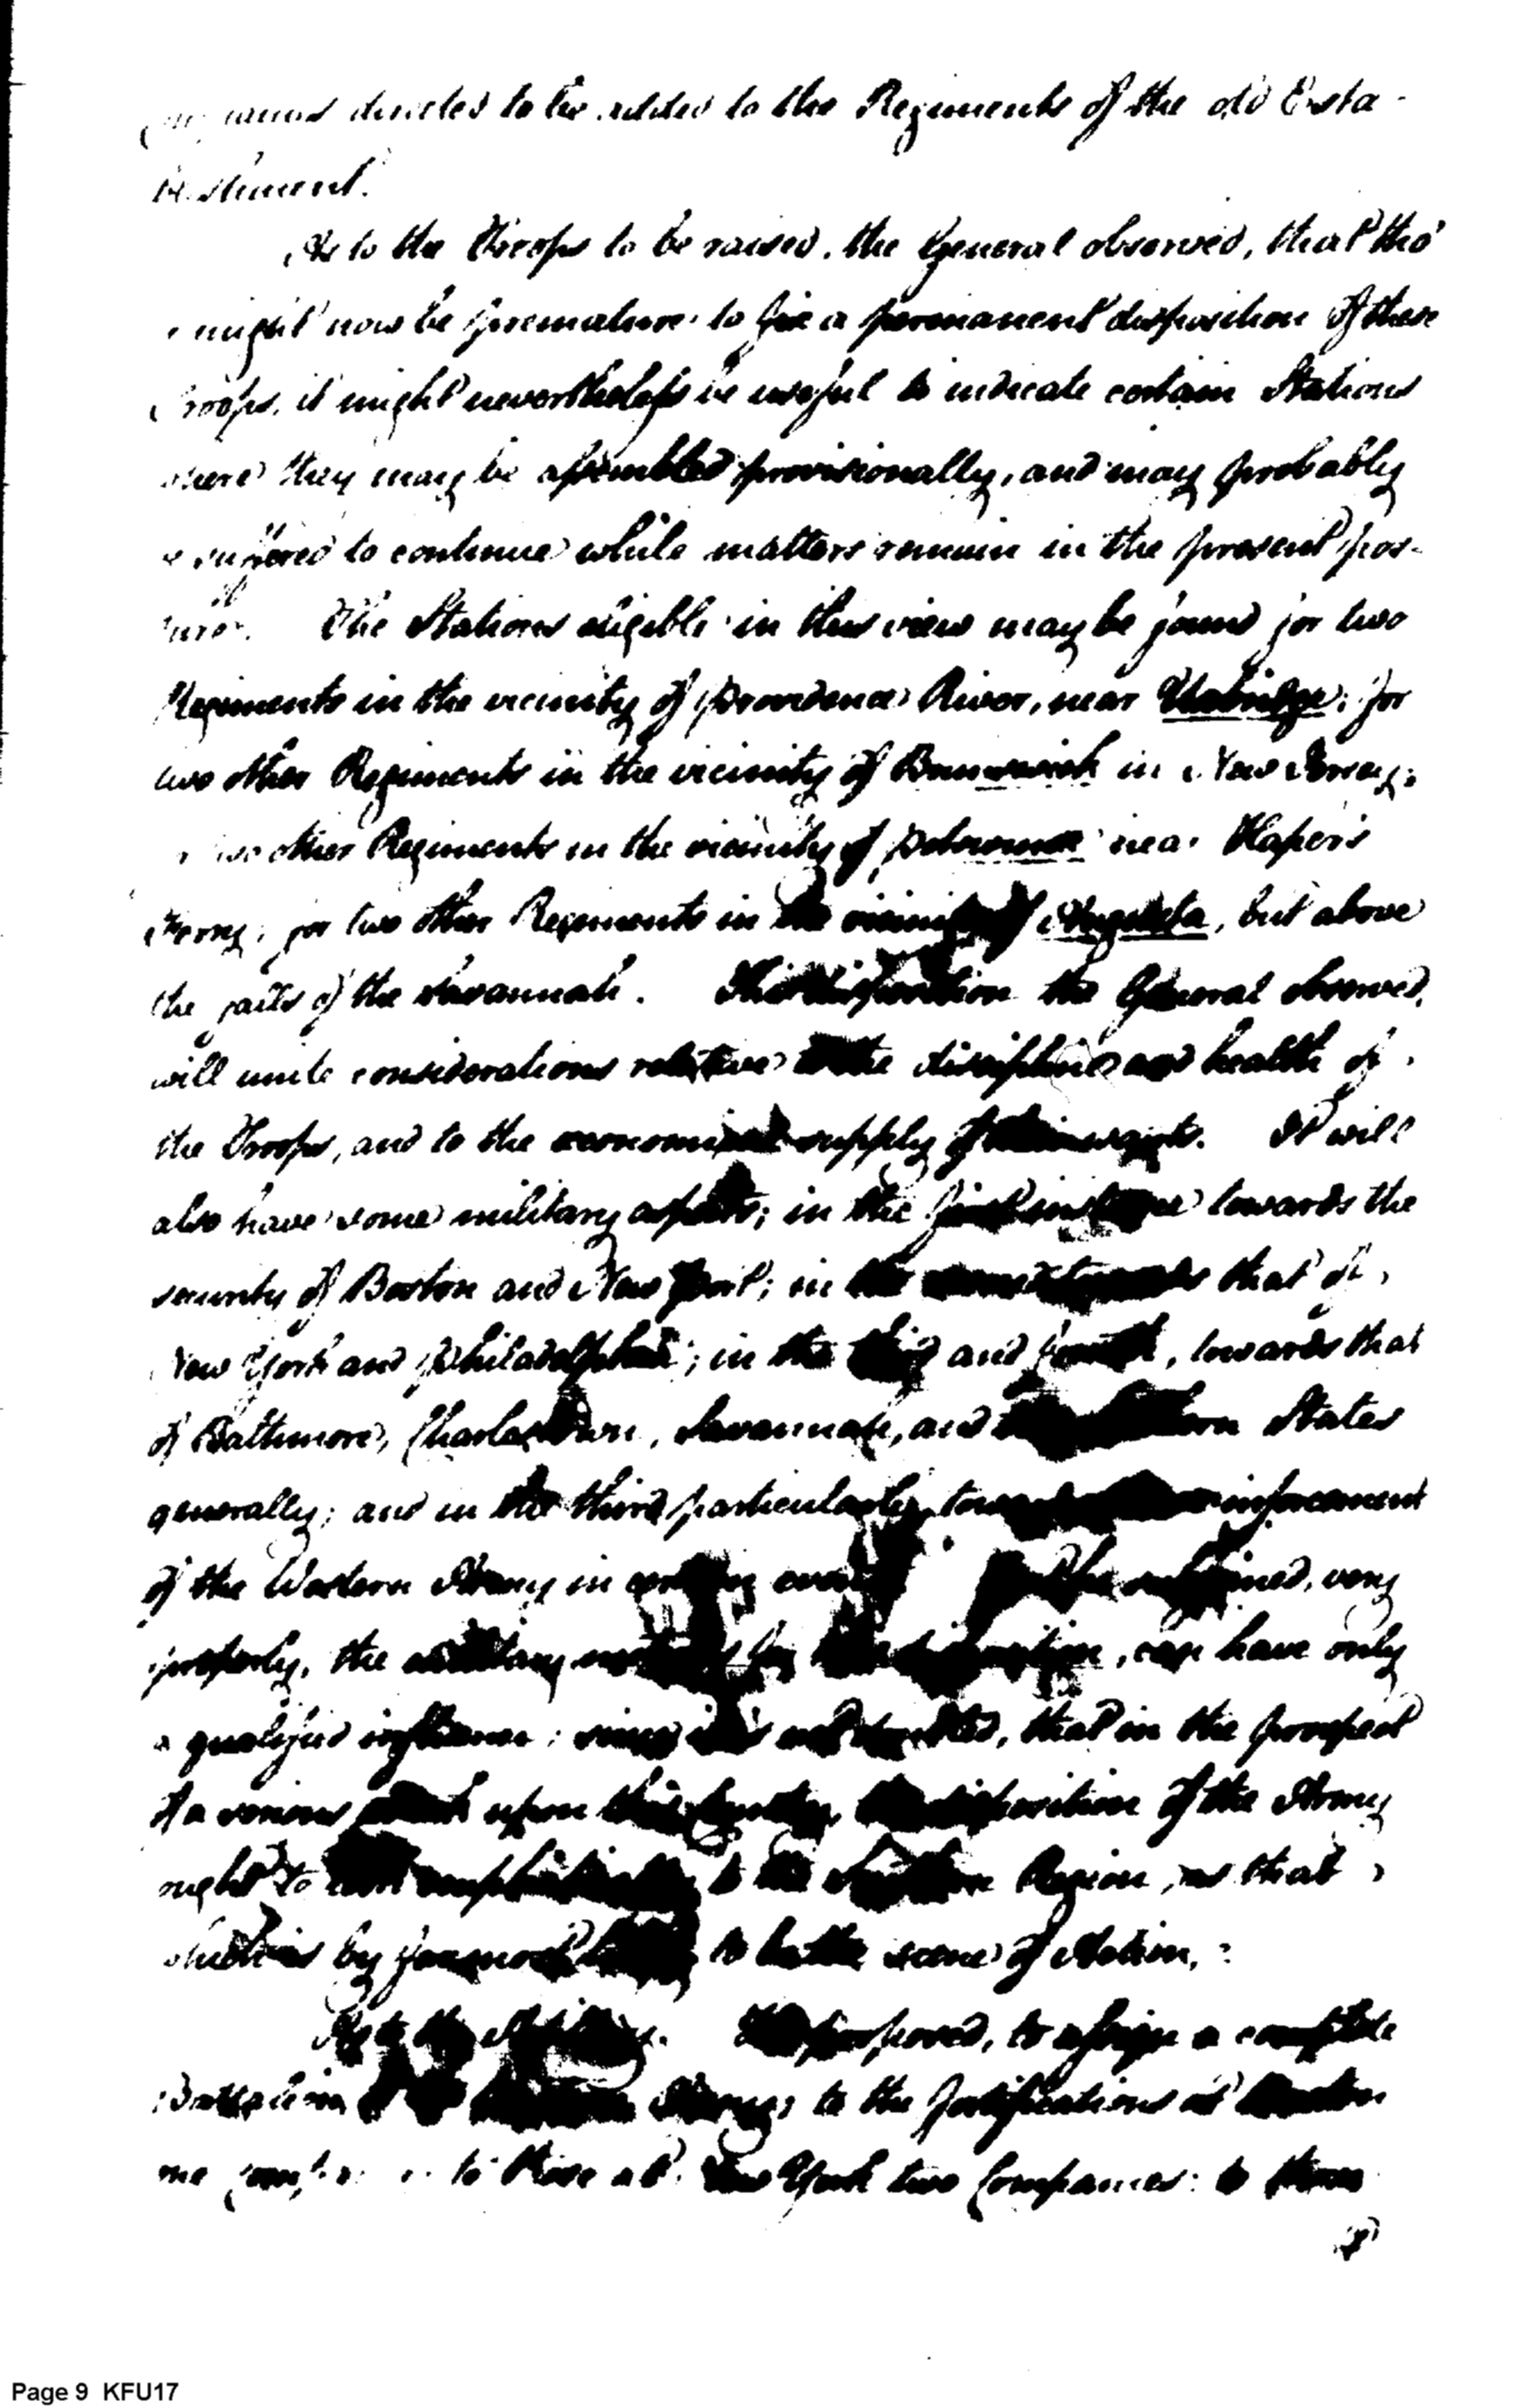 directed to be added to the Regiments of the old Esta-
blishment.
As to the Troops to be raised, the General observed, that tho'
might now be premature to fix a permanent disposition of these
Troops, it might nevertheless be useful to indicate certain Stations
where they may be assembled provisionally, and may probably
suffered to continue while matters remain in the present pos-
ture. The Stations eligible in this view may be found for two
Regiments in the vicinity of Providence River, near Uxbridge; for
two other Regiments in the vicinity of Brunswick in New Jersey;
two other Regiments in the vicinity of Potowmac near Harper's
Ferry; for two other Regiments in the vicinity of Augusta, but above
the falls of the Savannah. This disposition the General observed,
will unite considerations relative to the discipline and health of
the Troops, and to the economical supply of their wants. It will
also have some military aspects; in the first instance towards the
security of Boston and New Port; in the that of
New York and Philadelphia; in the third and fourth, towards that
of Baltimore, Charlestown, Savannah, and States
generally; and in the third particularly towards reinforcement
of the Western Army in certain events. very
properly, the military motives for disposition, can have only
a qualified influence; since it is not that in the prospect
of a serious attack upon this Country, the disposition of the Army
ought to emphatically to the Southern Region, as that
which is by far most to be the scene of Action.
As to the Artillery. proposed, to assign a complete
Battalion Army; to the fortifications at
to those at New York two Companies: to those